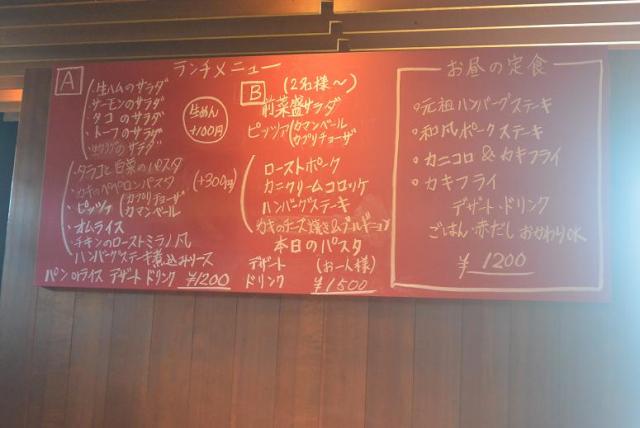 ランチメニュー
A
・生ハムのサラダ
・サーモンのサラダ
・タコのサラダ
・トーフのサラダ
のサラダ
生めん
+100円
・タラコと白菜のパスタ
・カキのペペロンパスタ
・ピッツァ(カプリチョーザ
カマンベール
(+300円)
・オムライス
・チキンのローストミラノ風
・ハンバーグステーキ煮込みソース
パンorライス デザート ドリンク ¥1200
B (2名様〜)
前菜盛サラダ
ピッツァ(カマンベール
カプリチョーザ
ローストポーク
カニクリームコロッケ
ハンバーグステーキ
カキのチーズ焼き&ブルギニョン
本日のパスタ
デザート (お一人様)
ドリンク ¥1500
お昼の定食
○元祖ハンバーグステーキ
○和風ポークステーキ
○カニコロ&カキフライ
○カキフライ
デザート・ドリンク
ごはん・赤だし おかわりOK
¥1200